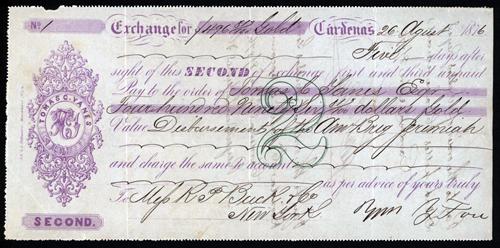 No. 1 Exchange for $496 Gold Cárdenas 26 August 1876
Five days after
sight of this SECOND of exchange first and third unpaid
Pay to the order of Tomas C. Yanes Esq.
Four hundred Ninety six dollars Gold
Value Disbursement of the Am Brig Jeremiah
and charge the same to account as per advice of yours truly
To Mess R. P. Buck & Co
New York
TOMAS C. YANES
SECOND.